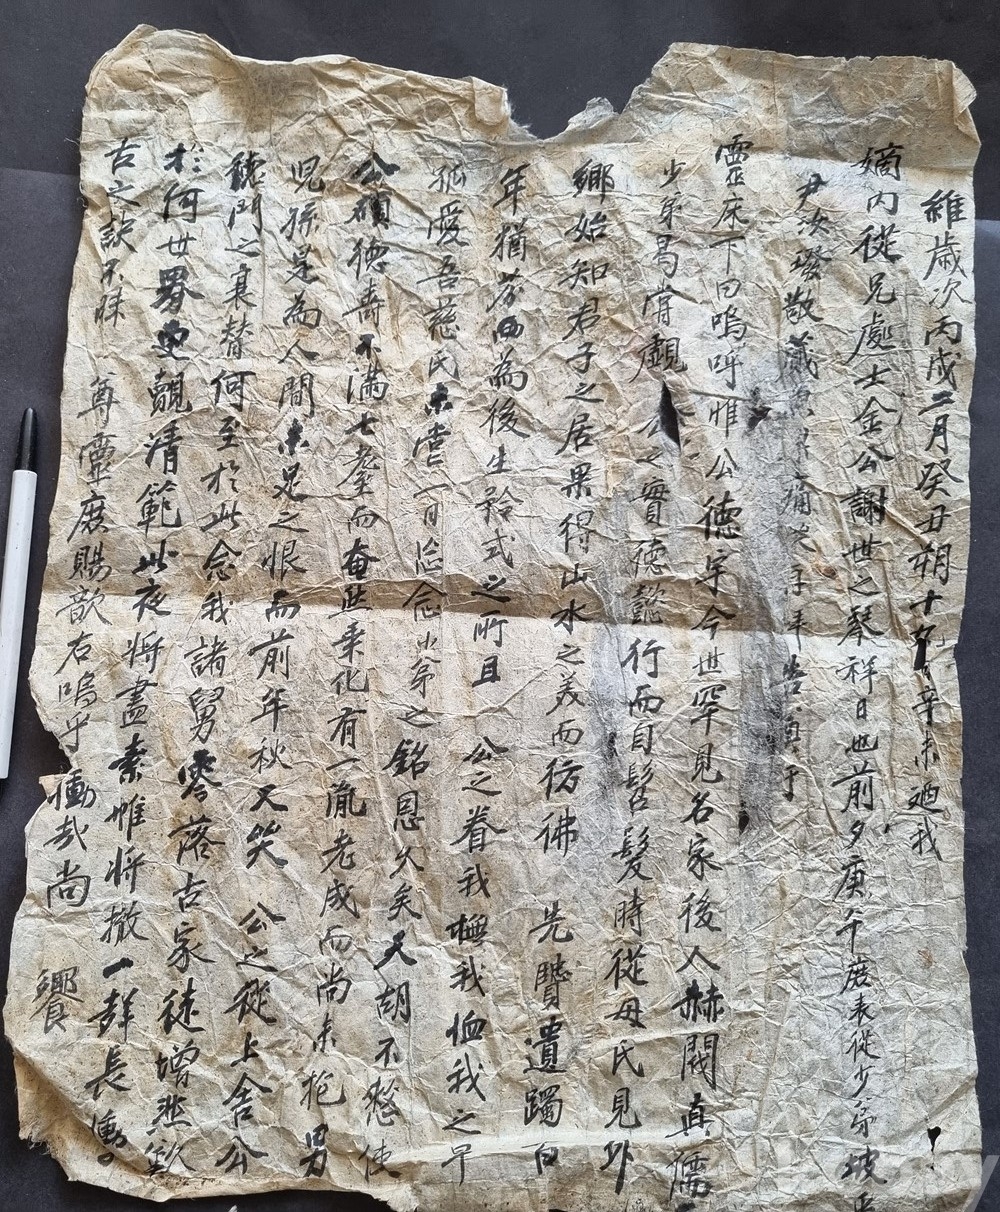 維歲次丙戌二月癸丑朔十九日辛未廼我
嫡內從兄處士金公謝世之琴祥日也前夕庚午庶表從少弟坡
尹汝璣敬薦 痛 告 于
靈床下曰嗚呼惟公德宇今世罕見名家後入赫閥真儒
少弟曷嘗覿 公之實德懿行而自髫髮時從母氏見外
鄉始知君子之居果得山水之美而彷彿 先賢遺躅白
年猶 而為後生矜式之所且 公之眷我撫我恤我之早
孤愛吾慈氏未嘗一日忘念少弟之銘恩久矣天胡不憖使
公碩德壽不滿七耋而奄然乘化有一胤老成而尚未抱男
兒孫是為人間未足之恨而前年秋又哭 公之從上舍公
德門之衰替何至於此念我諸舅零落古家徒增悲歎
於何世界更覿清範此夜將盡素帷將撤一辞長慟
古之訣不昧 尊靈庶賜歆右嗚乎慟哉尚
饗